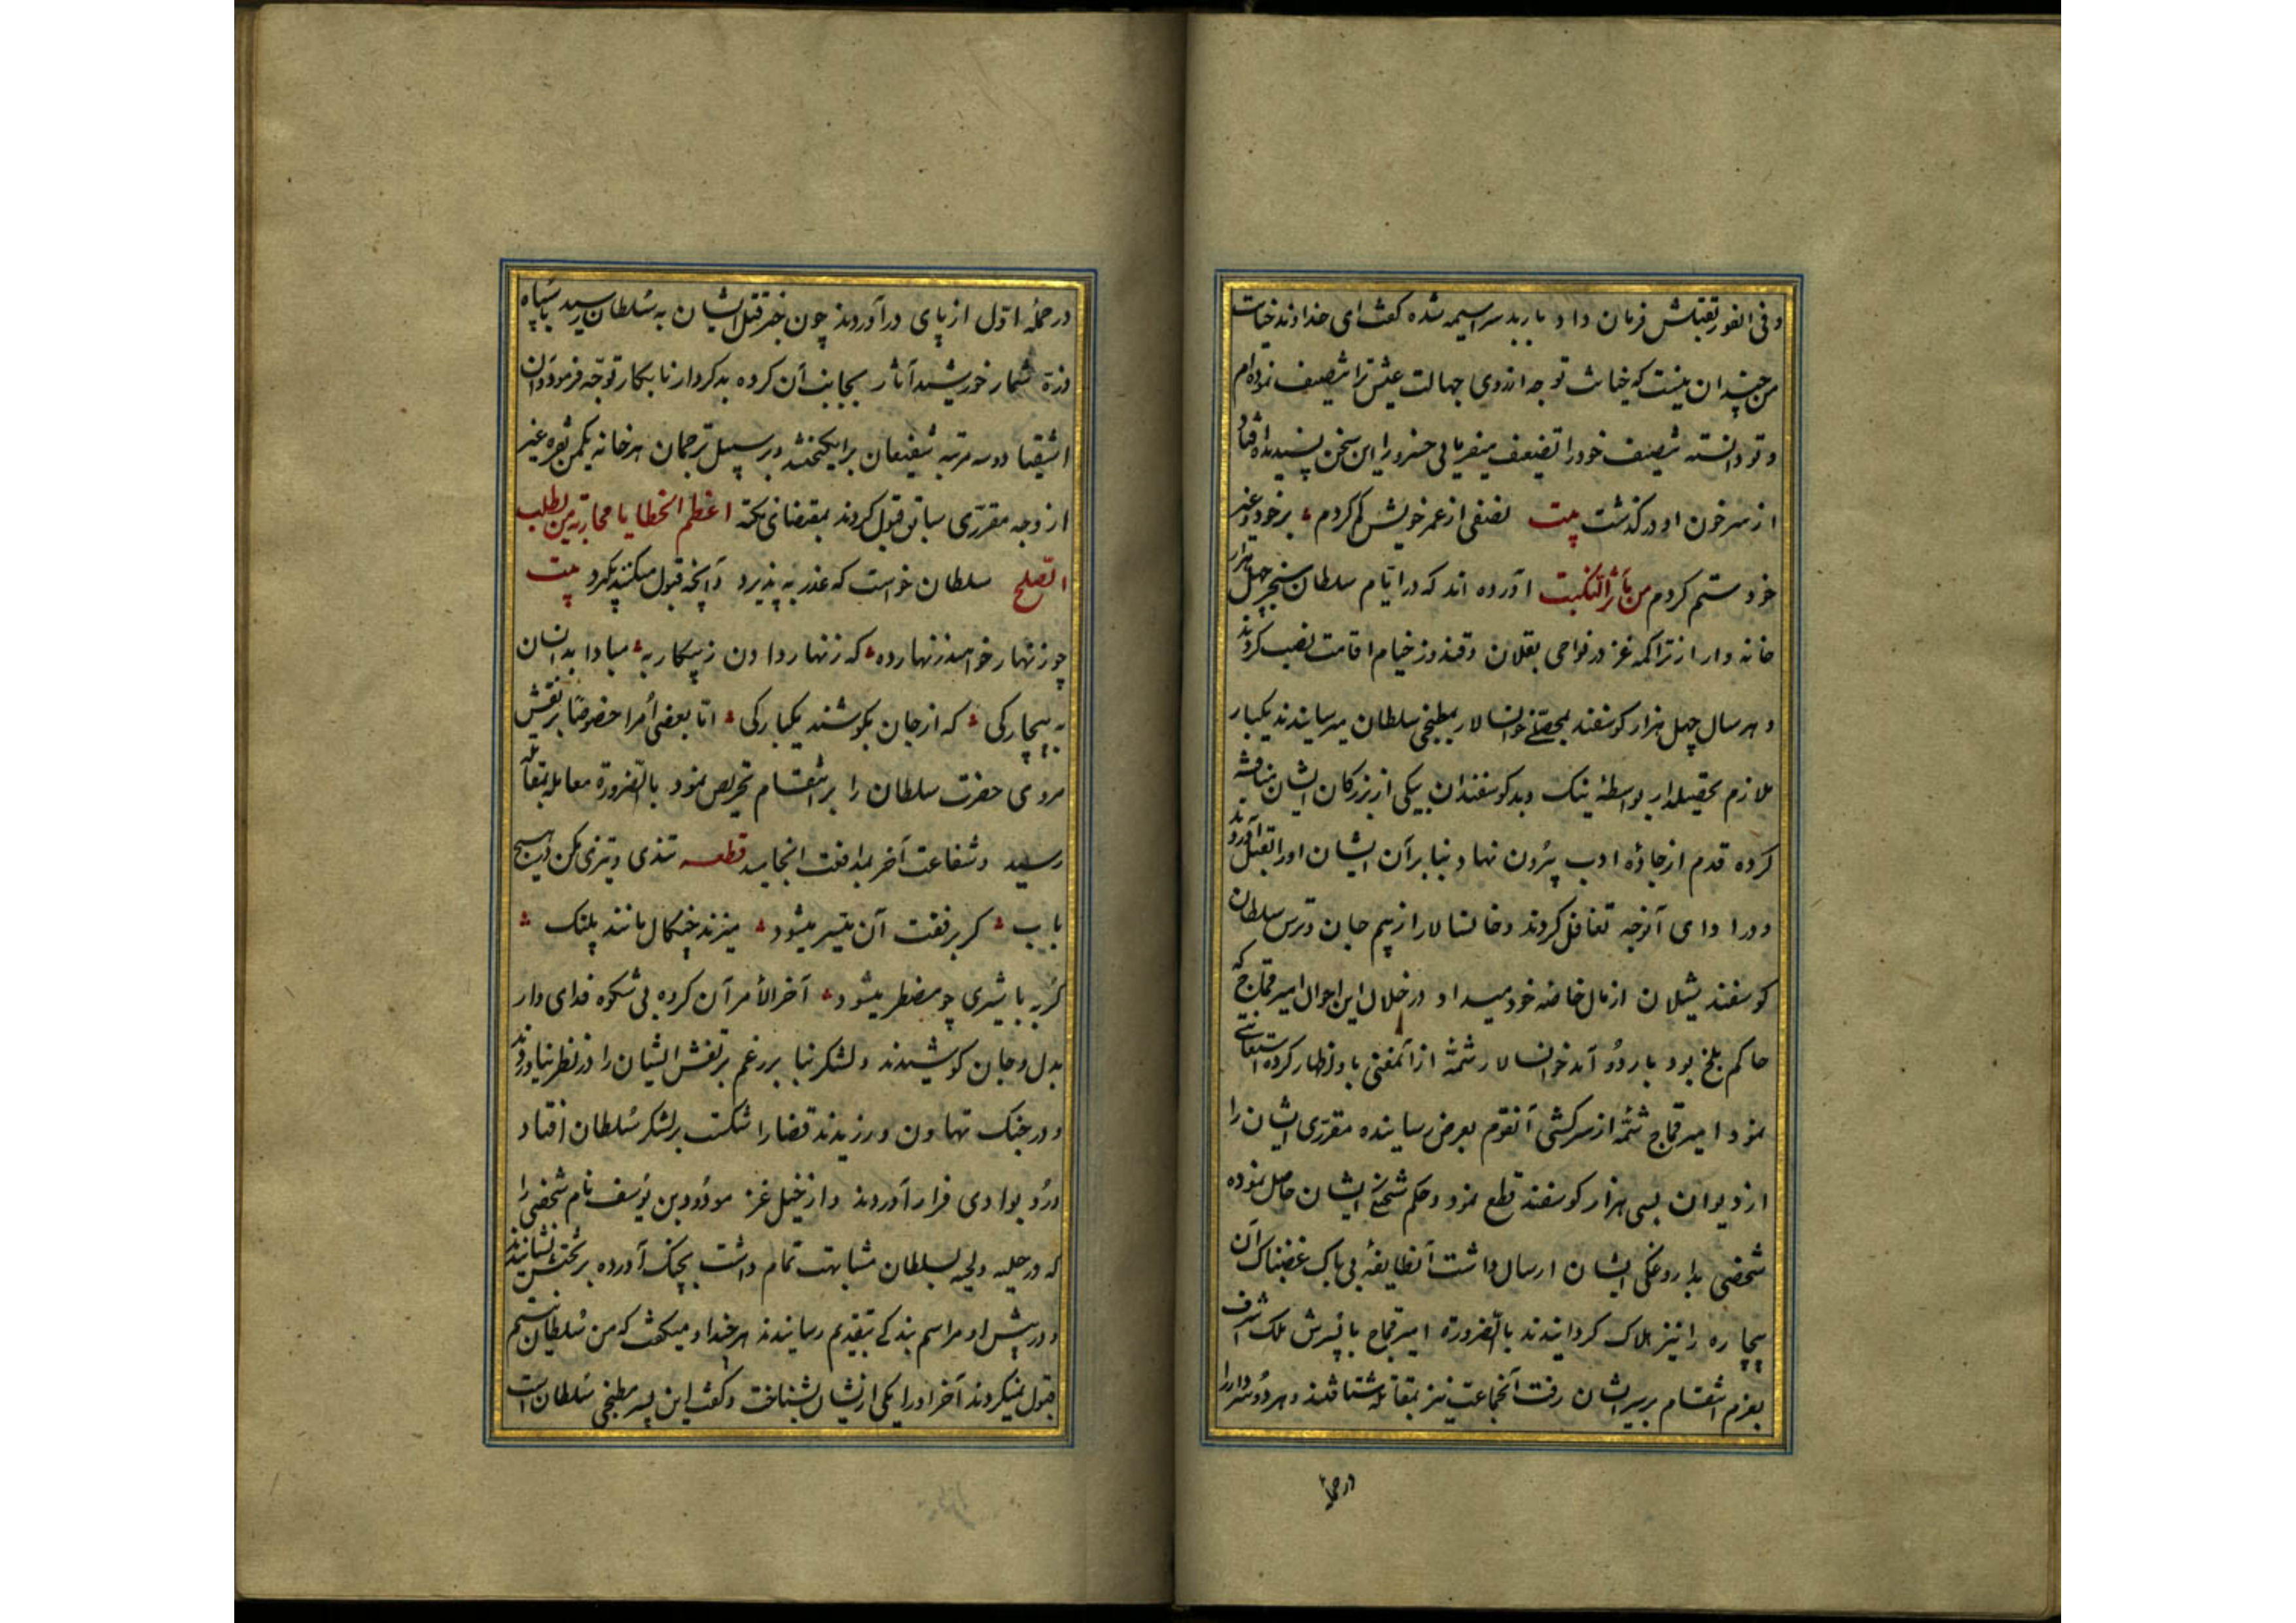 و فی الفور بقتلش فرمان داد باربد سراسیمه شده کفت ای خداوند خیانت
من چندان نیست که خیانت تو چه از روی جهالت عیش ترا تنصیف نموده ام
و تو دانسته تنصیف خود را تضیف میفرمایی خسرو را این سخن پسندیده افتاد
از سر خون او در کذشت بیت نصفی از عمر خویش کم کردم بر خود و غیر
خود ستم کردم من مآثر النکبت آورده اند که در ایام سلطان سنجر چهل هزار
خانه وار از تراکمه غز در نواحی بقلان و قندوز خیام اقامت نصب کردند
و هر سال چهل هزار کوسفند بجهة خوانسالار بمطبخ سلطان میرسانیدند یکبار
ملازم تحصیلدار بواسطهٔ نیک و بد کوسفندان بیکی از بزرکان ایشان مناقشه
کرده قدم از جادهٔ ادب بیرون نهاد بنا بر آن ایشان او را بقتل آوردند
و در ادای آنوجه تغافل کردند و خانسالار از بیم جان و ترس سلطان
کوسفند شیلان از مال خاصه خود میداد در خلال این احوال امیر قماج که
حاکم بلخ بود باردو آمد خوانسالار شمهٔ از آنمعنی باو اظهار کرده استغاثه
نمود امیر قماج شمه از سرکشی آنقوم بعرض رسانیده مقرری ایشان را
از دیوان بسی هزار کوسفند قطع نمود و حکم شحنکی ایشان حاصل نموده
شخصی بداروغکی ایشان ارسال داشت آنطایفهٔ بی باک غضبناک آن
بیچاره را نیز هلاک کردانیدند بالضرورة امیر قماج با پسرش ملک اشرف
بعزم انتقام بر سر ایشان رفت آنجماعت نیز بمقاتله شتافتند و هر دو سردار را
در حمله
در حملهٔ اول از پای در آوردند چون خبر قتل ایشان به سلطان رسید با سپاه
ذرة شمار خورشید آثار بجانب آن کروه بد کردار نابکار توجه فرمود و آن
اشقیا دو سه مرتبه شفیعان برانکیختند و بر سبیل ترجمان هر خانه یکمن نقره غیر
از وجه مقرری سابق قبول کردند بمقتضای نکته اعظم الخطایا محاربة من یطلب
الصلح سلطان خواست که عذر به پذیرد و آنچه قبول میکنند بکیرد بیت
چو زنهار خواهند زنهار ده که زنهار دادن ز پیکار به مبادا بدانسان
به بیچارکی که از جان بکوشند یکبارکی اما بعضی اُمرا خصوصا برنقش
مروی حضرت سلطان را بر انتقام تحریص نمود بالضرورة معامله بمقاتله
رسید و شفاعت آخر بمدافعت انجامید قطعه تندی و تیزی مکن در هیچ
باب کر برفقت آن میسر میشود میزند چنکال مانند پلنک
کربه با شیری چو مضطر میشود آخر الأمر آن کروه بی شکوه فدای وار
بدل و جان کوشیدند و لشکر بنا بر رغم برنقش ایشان را در نظر نیاوردند
و در جنک تهاون ورزیدند قضا را شکست بر لشکر سلطان افتاد
و رُو بوادی فرار آوردند و از خیل غز مودود بن یوسف نام شخصی را
که در حلیه و لحیه بسلطان مشابهت تمام داشت بچنک آورده بر تختش نشانیدند
و در پیش او مراسم بندکی بتقدیم رسانیدند هر چند او میکفت که من سُلطان نیستم
قبول نمیکردند آخر او را یکی از ایشان بشناخت و کفت این پسر مطبخی سُلطان است